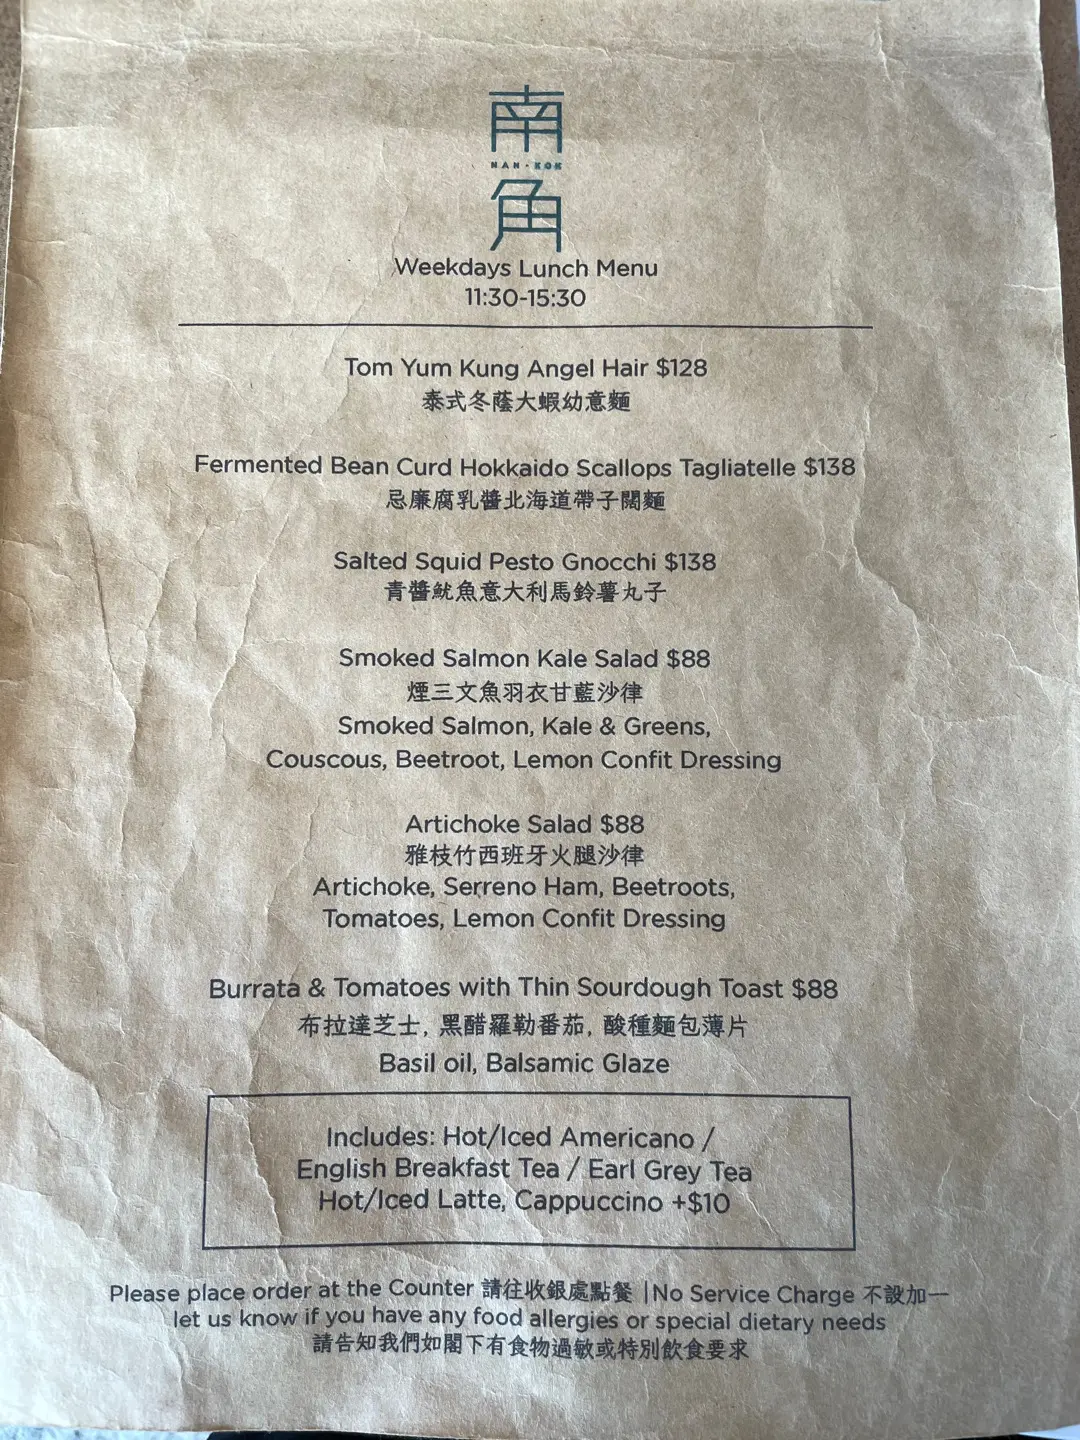 南
NAN · KOK
角
Weekdays Lunch Menu
11:30-15:30
Tom Yum Kung Angel Hair $128
泰式冬蔭大蝦幼意麵
Fermented Bean Curd Hokkaido Scallops Tagliatelle $138
忌廉腐乳醬北海道帶子闊麵
Salted Squid Pesto Gnocchi $138
青醬魷魚意大利馬鈴薯丸子
Smoked Salmon Kale Salad $88
煙三文魚羽衣甘藍沙律
Smoked Salmon, Kale & Greens,
Couscous, Beetroot, Lemon Confit Dressing
Artichoke Salad $88
雅枝竹西班牙火腿沙律
Artichoke, Serreno Ham, Beetroots,
Tomatoes, Lemon Confit Dressing
Burrata & Tomatoes with Thin Sourdough Toast $88
布拉達芝士, 黑醋羅勒番茄, 酸種麵包薄片
Basil oil, Balsamic Glaze
Includes: Hot/Iced Americano /
English Breakfast Tea / Earl Grey Tea
Hot/Iced Latte, Cappuccino +$10
Please place order at the Counter 請往收銀處點餐 |No Service Charge 不設加一
let us know if you have any food allergies or special dietary needs
請告知我們如閣下有食物過敏或特別飲食要求